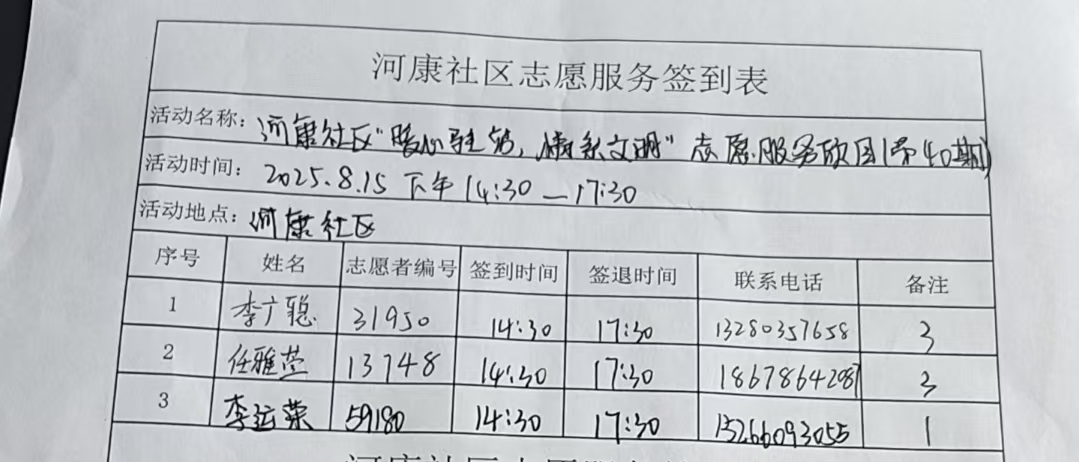 河康社区志愿服务签到表
活动名称：河康社区"暖心驿站，情系文明"志愿服务项目(第40期)
活动时间：2025.8.15 下午14:30—17:30
活动地点：河康社区
序号 姓名 志愿者编号 签到时间 签退时间 联系电话 备注
1 李广聪 31950 14:30 17:30 13280357658 3
2 任雅莹 13748 14:30 17:30 18678642087 3
3 李运荣 59180 14:30 17:30 15266093055 1